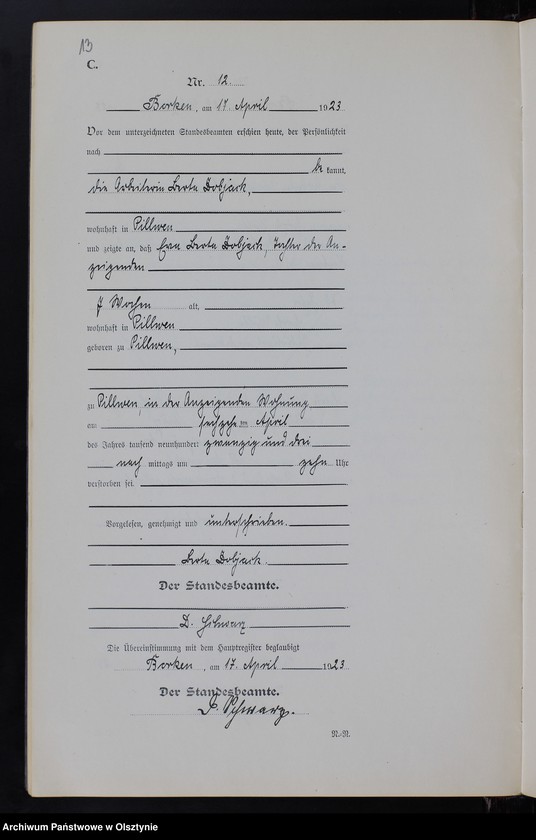 13
C.
Nr. 12.
Borken, am 17. April 1923
Vor dem unterzeichneten Standesbeamten erschien heute, der Persönlichkeit
nach
be kannt,
die Arbeiterin Berta Dobjack,
wohnhaft in Pillwen
und zeigte an, daß Eva Berta Dobjack, Tochter der An-
zeigenden
7 Wochen alt,
wohnhaft in Pillwen
geboren zu Pillwen,
zu Pillwen, in der Anzeigenden Wohnung
am sechzehn ten April
des Jahres tausend neunhundert zwanzig und drei
nach mittags um zehn Uhr
verstorben sei.
Vorgelesen, genehmigt und unterschrieben.
Berta Dobjack.
Der Standesbeamte.
D. Schwarz
Die Übereinstimmung mit dem Hauptregister beglaubigt
Borken, am 17. April 1923
Der Standesbeamte.
D. Schwarz.
R.-R.
Archiwum Państwowe w Olsztynie